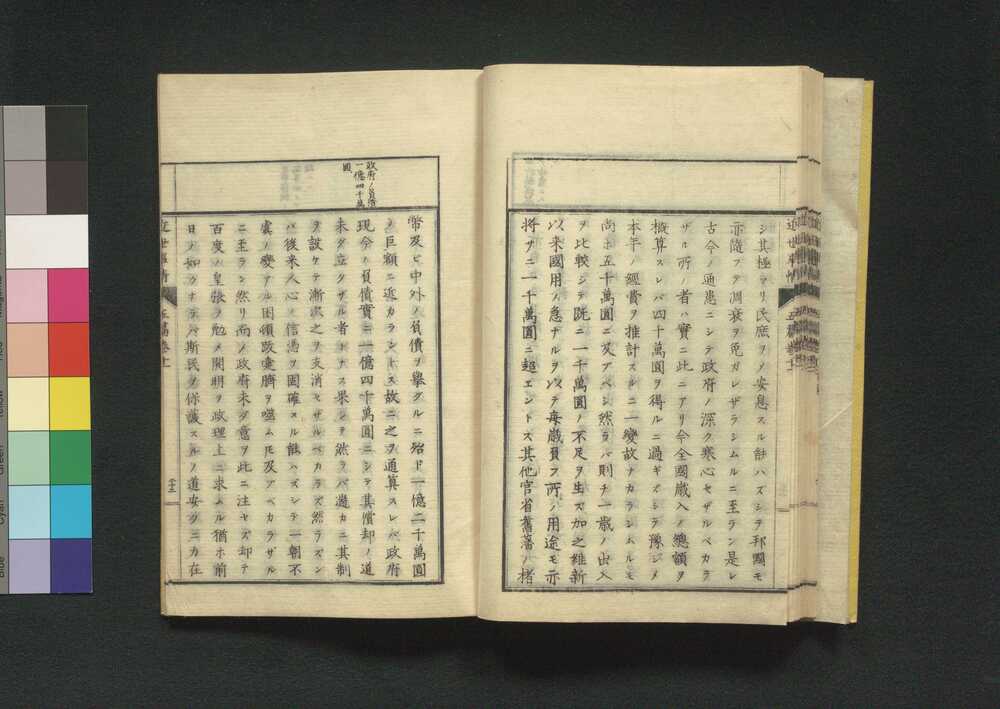 シ其極マリ民庶ヲメ安息スル能ハズシテ邦國モ
亦隨フテ凋衰ヲ免ガレザラシムルニ至ラン是レ
古今ノ通患ニシテ政府ノ深ク寒心セザルベカラ
ザル所ノ者ハ實ニ此ニアリ今全國歳入ノ總額ヲ
概算スレバ四千萬圓ヲ得ルニ過ギズシテ豫ジメ
本年ノ經費ヲ推計スルニ一變故ナカラシムルモ
尚ホ五千萬圓ニ及アベシ然ラバ則チ一歳ノ出入
ヲ比較シテ既ニ一千萬圓ノ不足ヲ生ズ加之維新
以来國用ノ急ナルヲ以テ毎歳負フ所ノ用途モ亦
將サニ一千萬圓ニ超エントス其他官省舊藩ノ楮
政府ノ負債
一億四千萬
圓
幣及ビ中外ノ負債ヲ擧グルニ殆ド一億二千萬圓
ノ巨額ニ近カラントス故ニ之ヲ通算スレバ政府
現今ノ負債實ニ一億四千萬圓ニシテ其償却ノ道
未ダ立タザル者トナス果シテ然ラバ速カニ其制
ヲ設ケテ漸次之ヲ支消セザルベカラズ然ラズン
バ後来人心ノ信憑ヲ固確スル能ハズシテ一朝不
虞ノ變アル困頓跋疐臍ヲ噬ム𪜈及アベカラザル
ニ至ラン然リ而メ政府未ダ意ヲ此ニ注セズ却テ
百度ノ皇張ヲ勉メ開明ヲ政理上ニ求ムル猶ホ前
日ノ如クナラバ斯民ヲ保護スルノ道安クニカ在